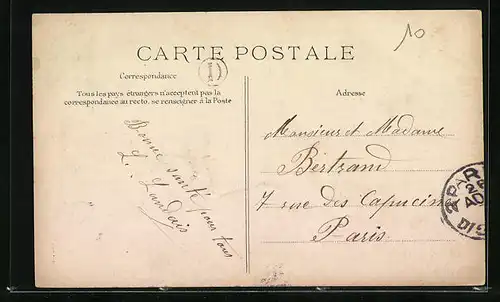 10
CARTE POSTALE
D
Correspondance
Tous les pays étrangers n'acceptent pas la
correspondance au recto, se renseigner à la Poste
Adresse
Bonne santé pour tous
L. Landais
Monsieur et Madame
Bertrand
7 rue des Capucines
Paris
PAR